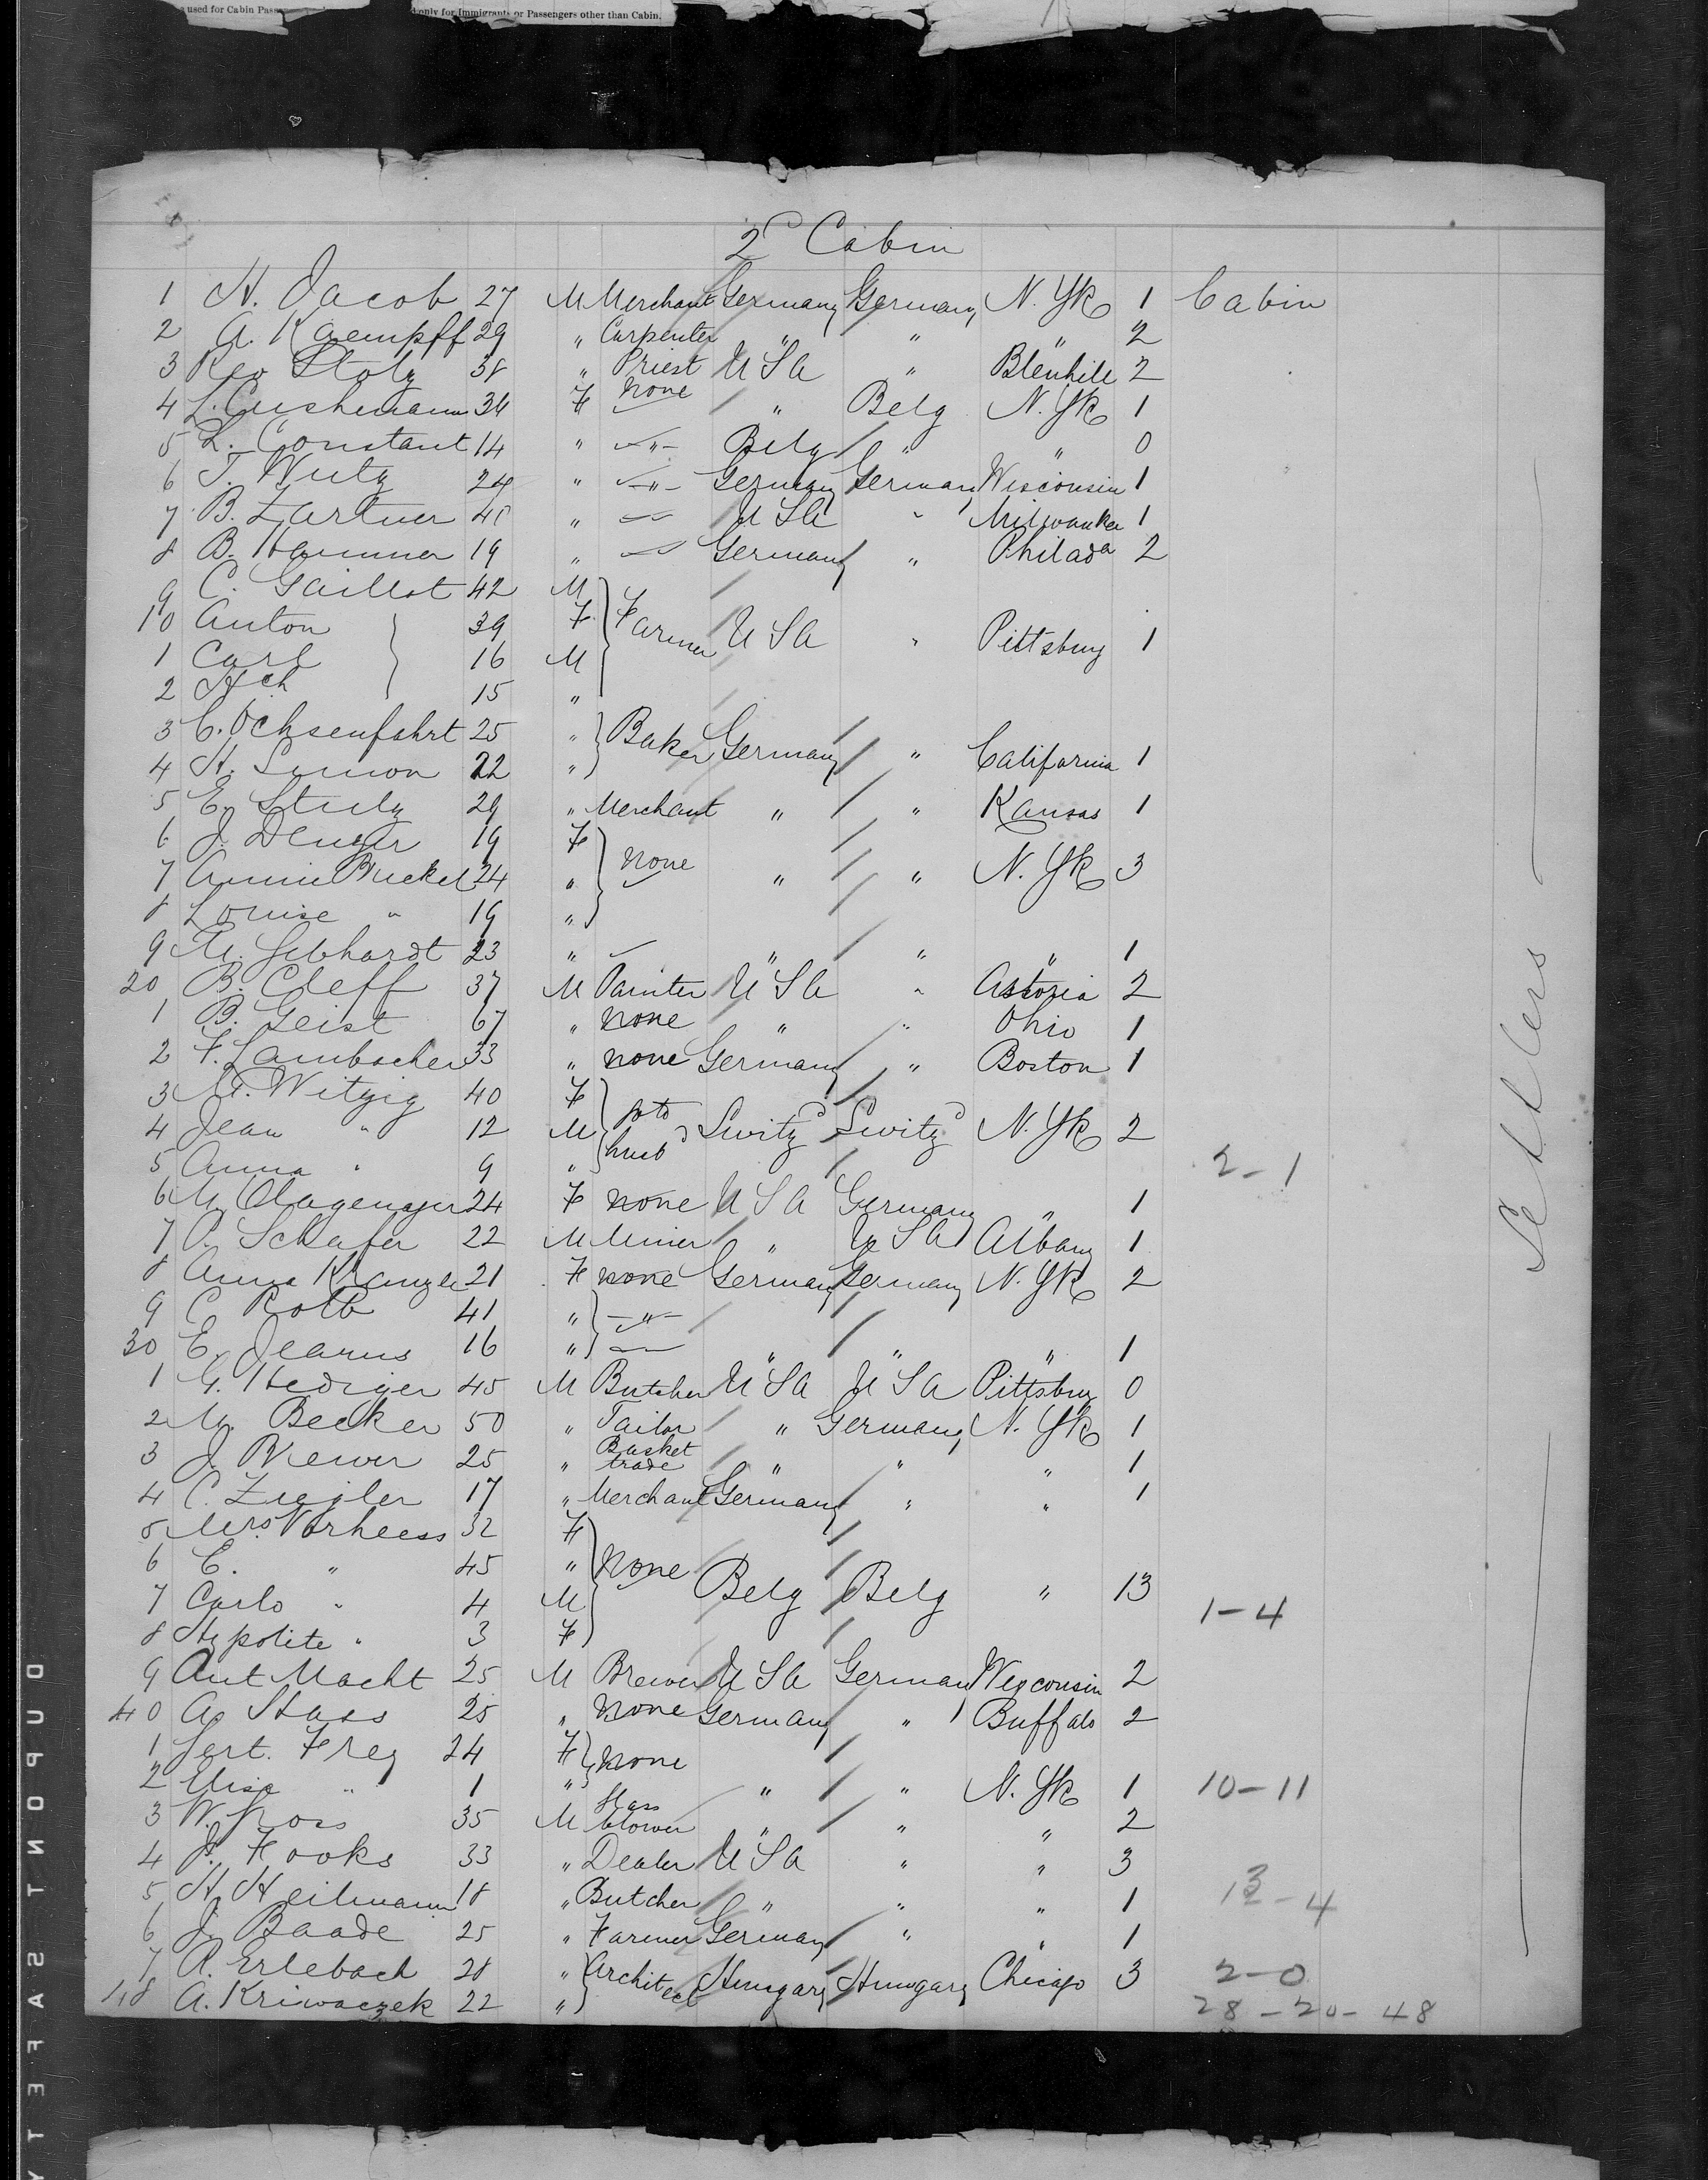 used for Cabin Pass
only for Immigrants or Passengers other than Cabin.
2d Cabin
1 H. Jacob 27 M Merchant Germany Germany N. Yk 1 Cabin
2 A. Kaempff 29 " Carpenter " " " 2
3 Rev Stolz 38 " Priest U S A " Blenhile 2
4 L. Cushemann 34 F none " Belg N. Yk 1
5 L. Constant 14 " " Belg " " 0
6 T. Wutz 24 " " Germany Germany Wisconsin 1
7 B. Zartner 45 " U S A " Milwaukee 1
8 B. Hammer 19 " Germany " Philada 2
9 C. Gaillot 42 M
10 Anton 39 F Farmer U S A " Pittsburg 1
1 Carl 16 M
2 Hch 15 "
3 C. Ochsenfahrt 25 " Baker Germany " California 1
4 H. Simon 22 "
5 E. Stulz 29 " Merchant " " Kansas 1
6 J. Denger 19 F
7 Annie Buckel 24 " none " " N. Yk 3
8 Louise " 19 "
9 M. Gebhardt 23 " " " " 1
20 B. Cleff 37 M Painter U S A " Astoria 2
1 B. Geist 67 " none " " Ohio 1
2 F. Lambacher 33 " none Germany " Boston 1
3 M. Witzig 40 F
4 Jean " 12 M to husb Switzd Switzd N. Yk 2
5 Anna " 9 "
2-1
6 M. 24 F none U S A Germany " 1
7 A. Schafer 22 M Miner " U S A Albany 1
8 Anna Kranzle 21 F none Germany Germany N. Yk 2
9 C. Roth 41 " "
30 E. Jearns 16 " " " " 1
1 G. Hediger 45 M Butcher U S A U S A Pittsburg 0
2 M. Becker 50 " Tailor " Germany N. Yk 1
3 J. Brewer 25 " Basket trade " " " 1
4 C. Ziegler 17 " Merchant Germany " " 1
5 Mrs. Vorheess 32 F
6 E. " 45 " none Belg Belg " 13
7 Carlo " 4 M
1-4
8 Hypolite " 3 F
9 Ant Macht 25 M Brewer U S A Germany Wisconsin 2
40 A. Stass 25 " none Germany " Buffalo 2
1 Gert. Frey 24 F none
2 Elise " 1 " " " N. Yk 1 10-11
3 W. Gross 35 M Glass blower " " " 2
4 J. Fooks 33 " Dealer U S A " " 3
5 H. Heilmann 18 " Butcher " " " 1 13-4
6 J. Baade 25 " Farmer Germany " " 1
7 A. Erlebach 28 " Architect Hungary Hungary Chicago 3 2-0
48 A. Kriwaczek 22 " 28-20-48
Settlers
DUPONT SAFETY